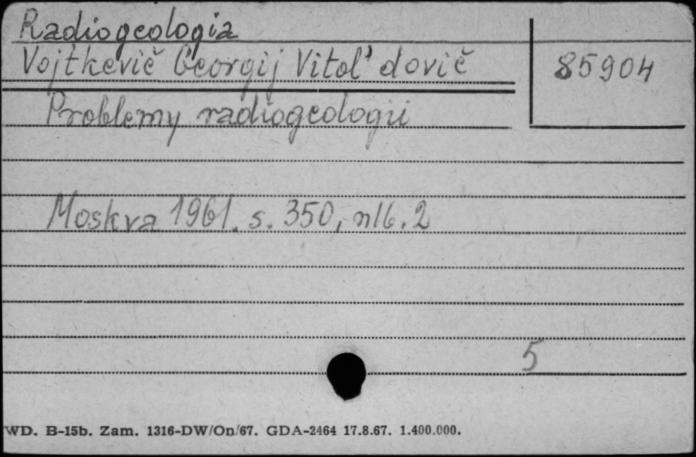 Radiogeologia
Vojtkevič Georgij Vitol'dovič
85904
Problemy radiogeologii
Moskva 1961. s. 350, nlb. 2
5
WD. B-15b. Zam. 1316-DW/On/67. GDA-2464 17.8.67. 1.400.000.